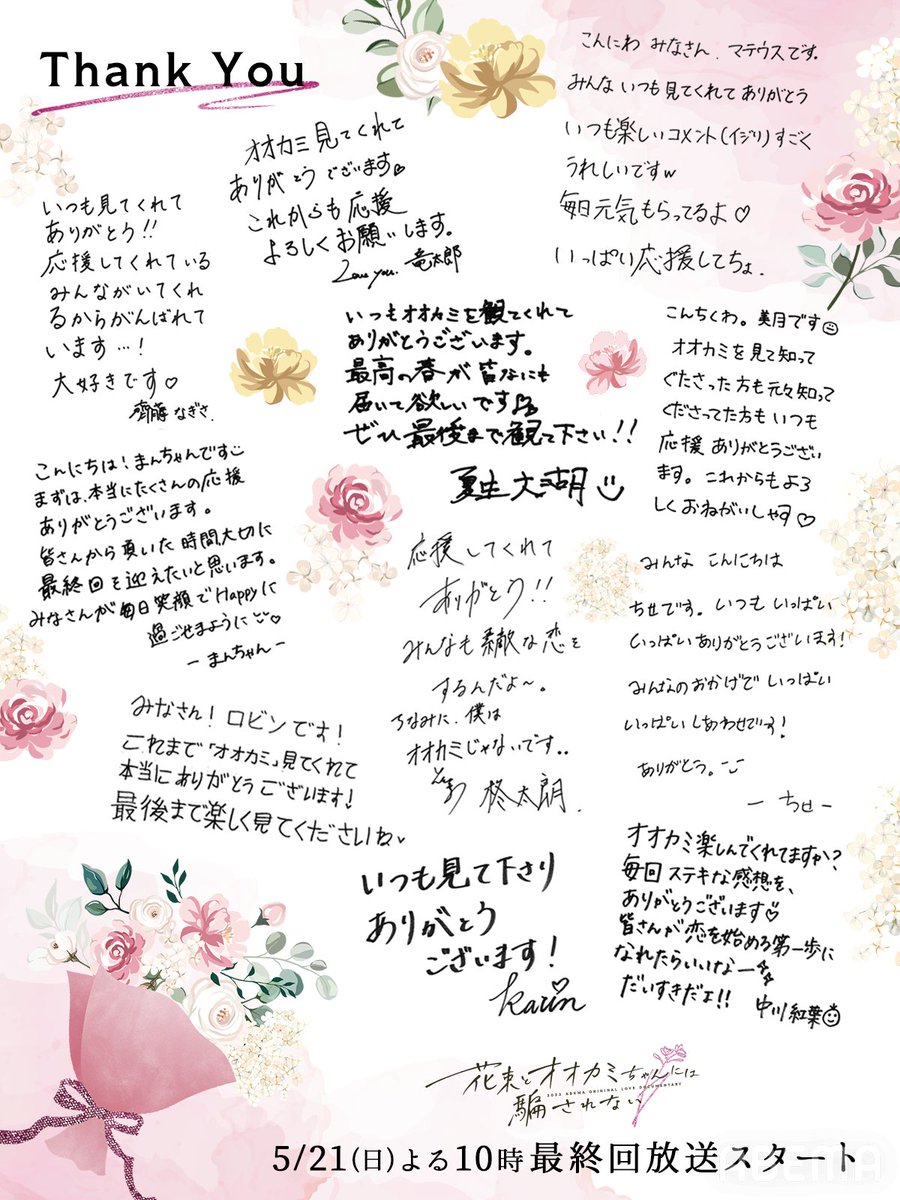 Thank You
こんにわ みなさん、マテウスです。
みんな いつも見てくれて ありがとう
いつも楽しいコメント(イジリ)すごく
うれしいですw
毎日元気もらってるよ♡
いっぱい応援してちょ.
オオカミ見てくれて
ありがとうございます♡
これからも応援
よろしくお願いします。
Love you. 竜太郎
いつも見てくれて
ありがとう!!
応援してくれている
みんながいてくれ
るからがんばれて
います…!
大好きです♡
齊藤なぎさ.
いつもオオカミを観てくれて
ありがとうございます。
最高の春が皆なにも
届いて欲しいです
ぜひ最後まで観て下さい!!
夏生大湖
こんちくわ。美月です☺
オオカミを見て知って
ぐたさった方も元々知って
くださってた方もいつも
応援ありがとうござい
ます。これからもよろ
しくおねがいしゃす♡
こんにちは!まんちゃんです
まずは、本当にたくさんの応援
ありがとうございます。
皆さんから頂いた時間大切に
最終回を迎えたいと思います。
みなさんが毎日笑顔でHappyに
過ごせますように♡
ーまんちゃんー
応援してくれて
ありがとう!!
みんなも素敵な恋を
するんだよ〜。
ちなみに、僕は
オオカミじゃないです..
柊太朗.
みんな こんにちは
ちせです。いつも いっぱい
いっぱいありがとうございます!
みんなのおかげで いっぱい
いっぱい しあわせです!
ありがとう。
ー ちせ ー
みなさん!ロビンです!
これまで「オオカミ」見てくれて
本当にありがとうございます!
最後まで楽しく見てくださいね♡
いつも見て下さり
ありがとう
ございます!
Karin♡
オオカミ楽しんでくれてますか?
毎回ステキな感想を、
ありがとうございます♡
皆さんが恋を始める第一歩に
なれたらいいなー
だいすきだよ!!
中川紅葉☺
花束とオオカミちゃんには
2023 ABEMA ORIGINAL LOVE DOCUMENTARY
騙されない
5/21(日)よる10時最終回放送スタート
ABEMA